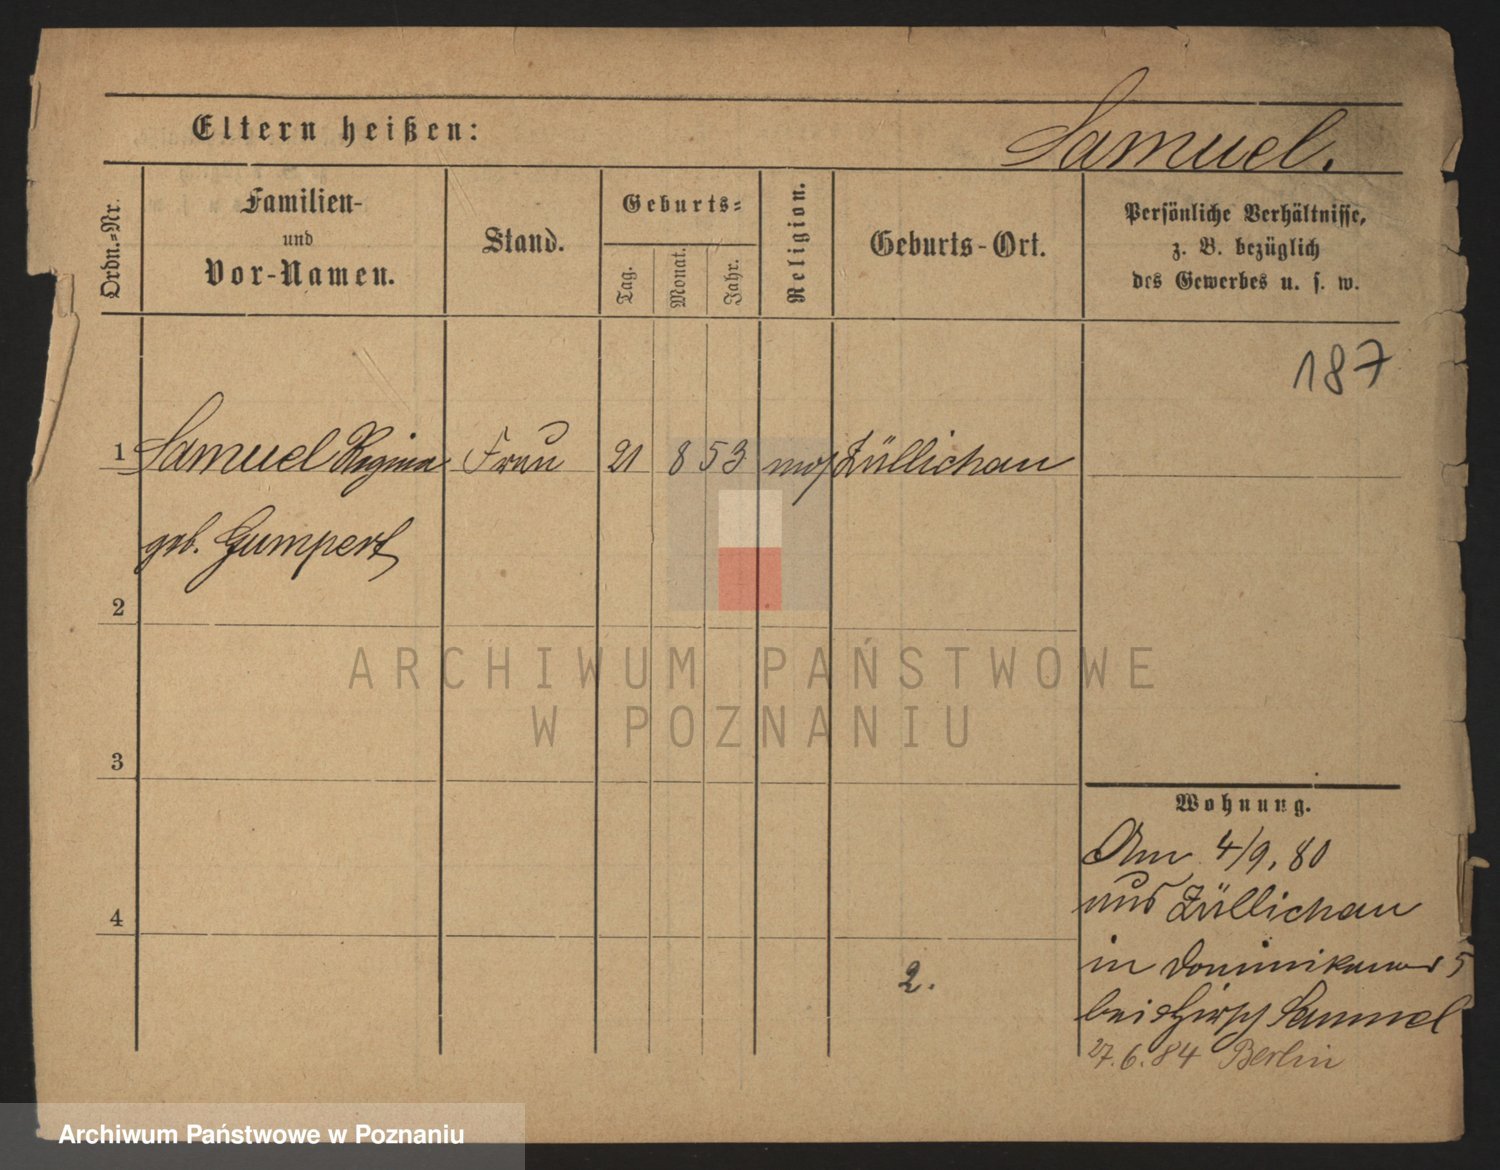 Eltern heißen:
Samuel.
Ordn.-Nr.
Familien-
und
Vor-Namen.
Stand.
Geburts-
Tag.
Monat.
Jahr.
Religion.
Geburts-Ort.
Persönliche Verhältnisse,
z. B. bezüglich
des Gewerbes u. s. w.
187
1 Samuel Regina Frau 21 8 53 mos Züllichau
geb. Gumpert
2
3
4
2.
Wohnung.
Am 4/9. 80
aus Züllichau
in Dominikaner 5
bei Hirsch Samuel
27.6.84 Berlin
ARCHIWUM PAŃSTWOWE
W POZNANIU
Archiwum Państwowe w Poznaniu